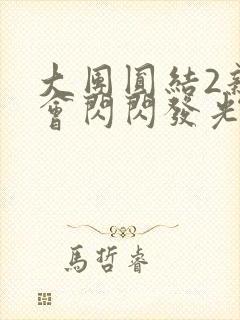 大團圓結2新
會閃閃發光
馬哲睿